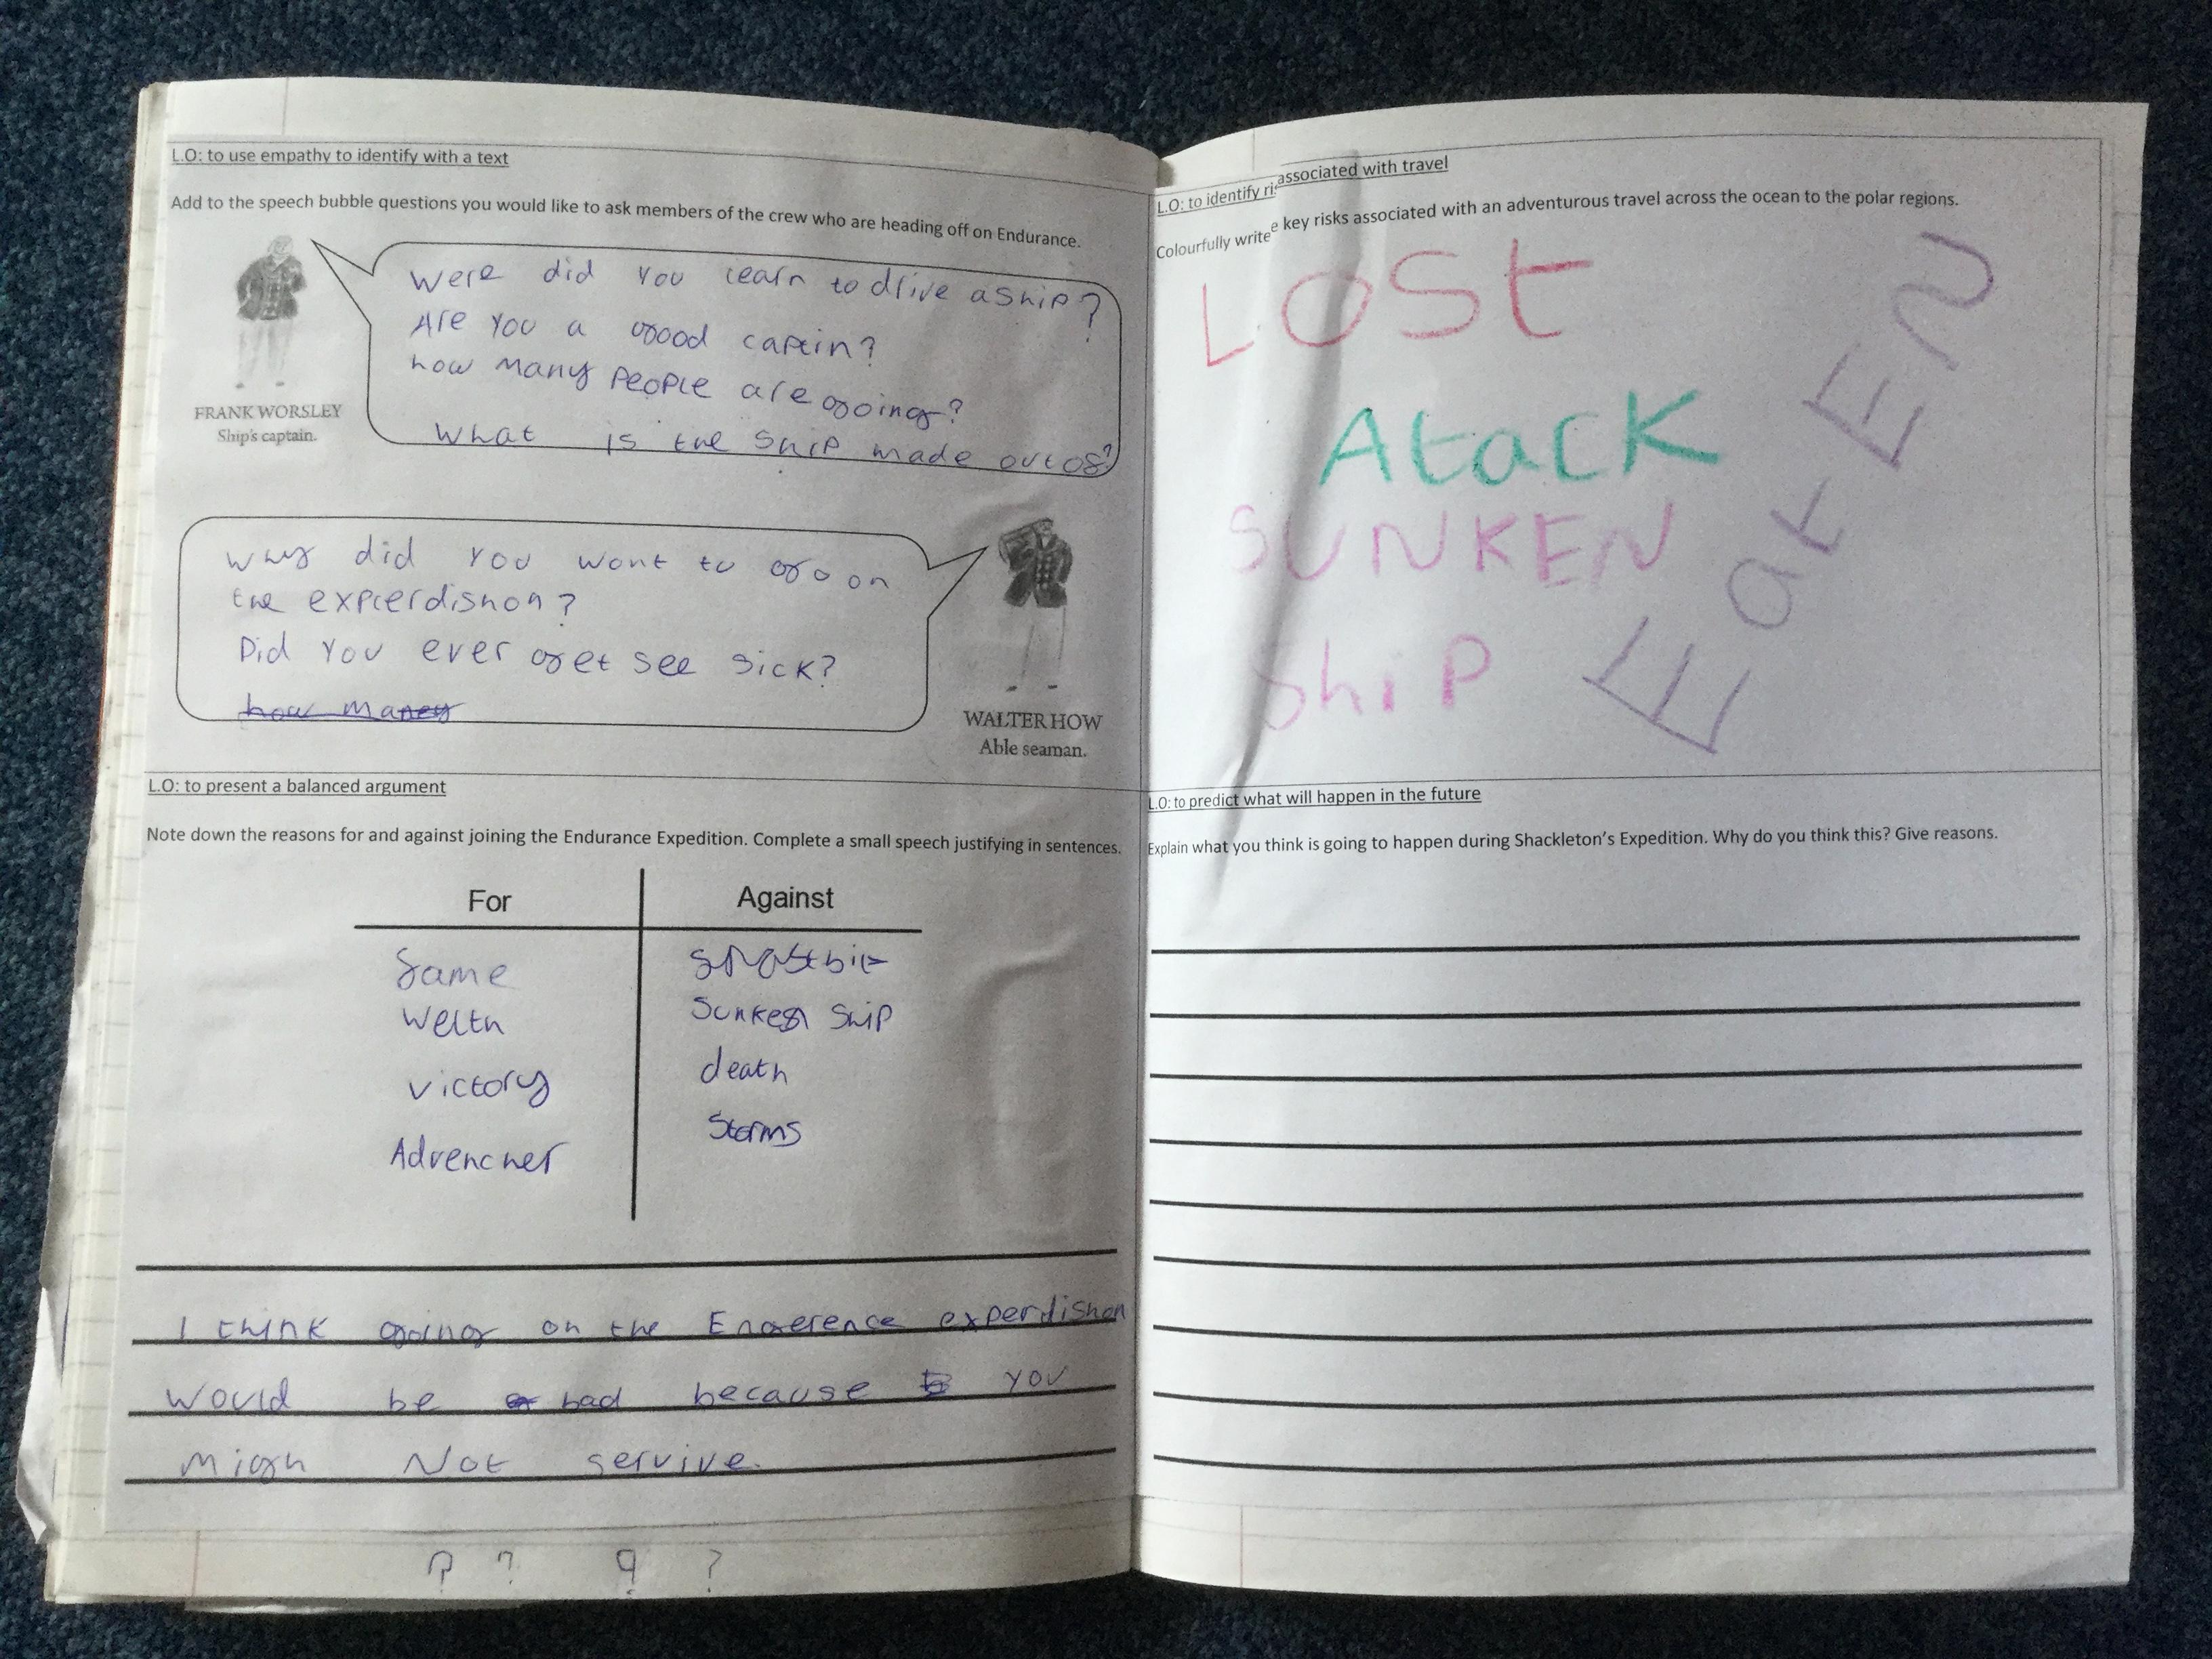 L.O: to use empathy to identify with a text
Add to the speech bubble questions you would like to ask members of the crew who are heading off on Endurance.
Were did you learn to drive a ship?
Are you a good captin?
how many people are going?
What is the ship made out of?
FRANK WORSLEY
Ship's captain.
why did you wont to go on
the experdishon?
Did you ever get see sick?
how maney
WALTER HOW
Able seaman.
L.O: to present a balanced argument
Note down the reasons for and against joining the Endurance Expedition. Complete a small speech justifying in sentences.
For Against
fame frostbit
Welth Sunken Ship
victory death
Advencher Storms
I think going on the experdishon
Would be bad because you
migh Not servive.
? ? ? ?
L.O: to identify ri associated with travel
Colourfully write key risks associated with an adventurous travel across the ocean to the polar regions.
LOSt
AtacK
SUNKEN
ShiP
EatEN
L.O: to predict what will happen in the future
Explain what you think is going to happen during Shackleton's Expedition. Why do you think this? Give reasons.